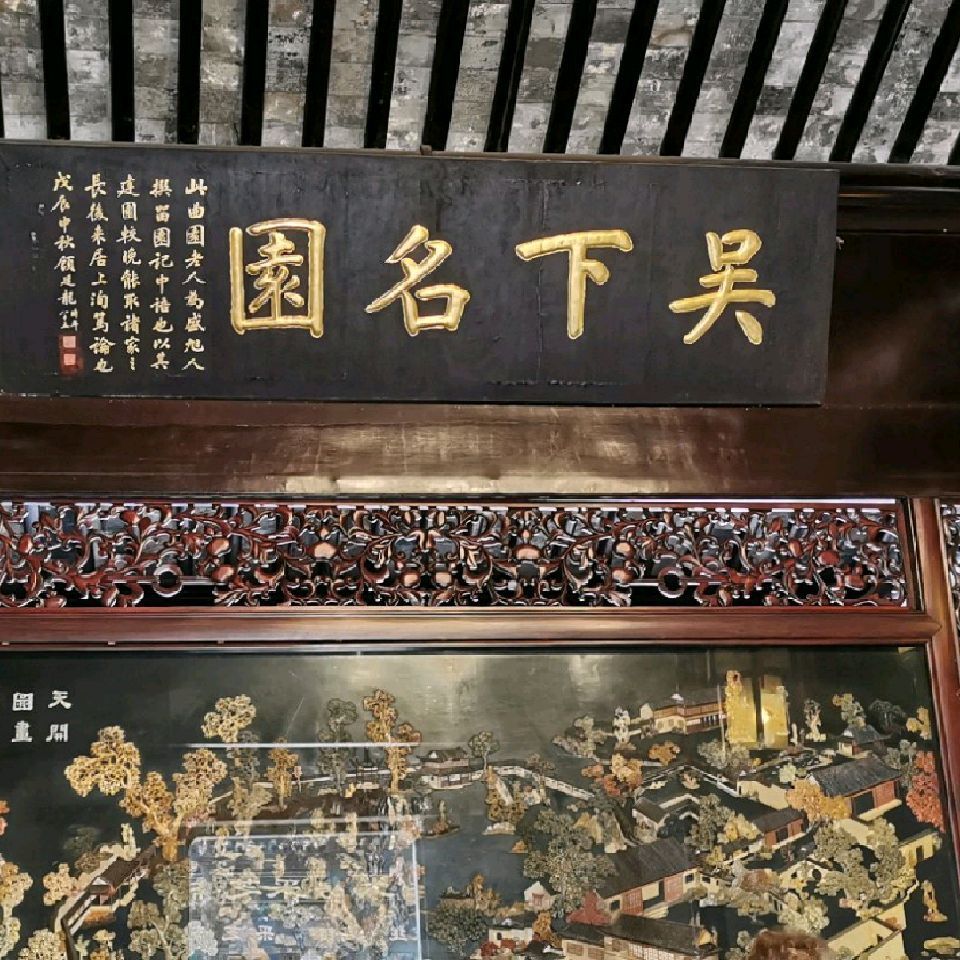 吴下名園
此曲園老人為盛旭人
撰留園記中語也以其
建園較晚能取諸家之
長後来居上洵篤論也
戊辰中秋顧廷龍
天開
圖畫